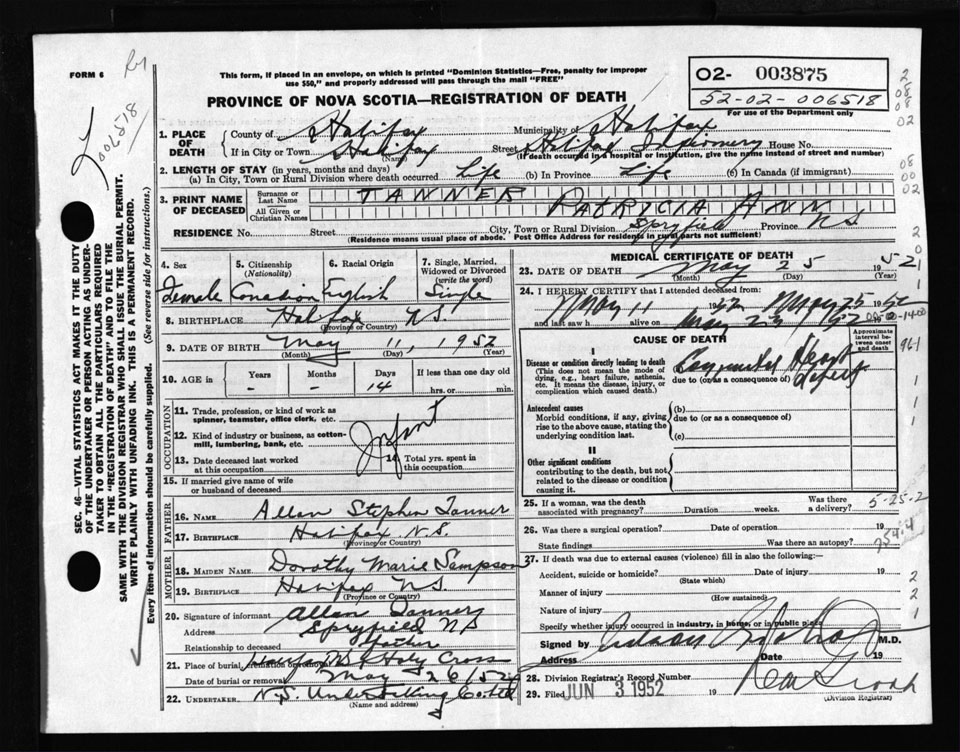 FORM 6
This form, if placed in an envelope, on which is printed "Dominion Statistics—Free, penalty for improper
use $50," and properly addressed will pass through the mail "FREE"
02- 003875
52-02-006518
For use of the Department only
PROVINCE OF NOVA SCOTIA—REGISTRATION OF DEATH
006518
SEC. 46—VITAL STATISTICS ACT MAKES IT THE DUTY
OF THE UNDERTAKER OR PERSON ACTING AS UNDER-
TAKER TO OBTAIN ALL THE PARTICULARS REQUIRED
IN THE "REGISTRATION OF DEATH" AND TO FILE THE
SAME WITH THE DIVISION REGISTRAR WHO SHALL ISSUE THE BURIAL PERMIT.
WRITE PLAINLY WITH UNFADING INK. THIS IS A PERMANENT RECORD.
Every item of information should be carefully supplied. (See reverse side for instructions.)
1. PLACE OF DEATH
County of Halifax Municipality of Halifax
If in City or Town Halifax Street Halifax Infirmary House No.
(Name) (If death occurred in a hospital or institution, give the name instead of street and number)
2. LENGTH OF STAY (in years, months and days)
(a) In City, Town or Rural Division where death occurred Life (b) In Province Life (c) In Canada (if immigrant)
3. PRINT NAME OF DECEASED
Surname or Last Name TANNER
All Given or Christian Names PATRICIA ANN
RESIDENCE No. Street City, Town or Rural Division Spryfield Province NS
(Residence means usual place of abode. Post Office Address for residents in rural parts not sufficient)
4. Sex Female
5. Citizenship (Nationality) Canadian
6. Racial Origin English
7. Single, Married, Widowed or Divorced (write the word) Single
8. BIRTHPLACE Halifax NS.
(Province or Country)
9. DATE OF BIRTH May 11, 1952
(Month) (Day) (Year)
10. AGE in Years - Months - Days 14 If less than one day old hrs. or min.
OCCUPATION
11. Trade, profession, or kind of work as
spinner, teamster, office clerk, etc.
Infant
12. Kind of industry or business, as cotton-
mill, lumbering, bank, etc.
13. Date deceased last worked
at this occupation
14. Total yrs. spent in
this occupation
15. If married give name of wife
or husband of deceased
FATHER
16. NAME Allan Stephen Tanner
17. BIRTHPLACE Halifax N.S.
(Province or Country)
MOTHER
18. MAIDEN NAME Dorothy Marie Sampson
19. BIRTHPLACE Halifax NS
(Province or Country)
20. Signature of informant Allan Tanner
Address Spryfield NS
Relationship to deceased Father
21. Place of burial, cremation or removal Holy Cross
Date of burial or removal May 26/52
22. UNDERTAKER N.S. Undertaking Co. Ltd
(Name and address)
MEDICAL CERTIFICATE OF DEATH
23. DATE OF DEATH May 25 1952
(Month) (Day) (Year)
24. I HEREBY CERTIFY that I attended deceased from:
May 11 1952 May 25 1952
and last saw h alive on May 1952
CAUSE OF DEATH
Approximate interval between onset and death
I
Disease or condition directly leading to death
(This does not mean the mode of
dying, e.g., heart failure, asthenia,
etc. It means the disease, injury, or
complication which caused death.)
Congenital Heart
due to (or as a consequence of) defect
Antecedent causes
Morbid conditions, if any, giving
rise to the above cause, stating the
underlying condition last.
(b)
due to (or as a consequence of)
(c)
II
Other significant conditions
contributing to the death, but not
related to the disease or condition
causing it.
25. If a woman, was the death
associated with pregnancy? Duration weeks. Was there a delivery?
5-25-2
26. Was there a surgical operation? Date of operation 19
State findings Was there an autopsy?
27. If death was due to external causes (violence) fill in also the following:—
Accident, suicide or homicide? Date of injury 19
(State which)
Manner of injury
(How sustained)
Nature of injury
Specify whether injury occurred in industry, in home, or in public place
Signed by M.D.
Address Date 19
28. Division Registrar's Record Number
29. Filed JUN 3 1952 19
(Division Registrar)